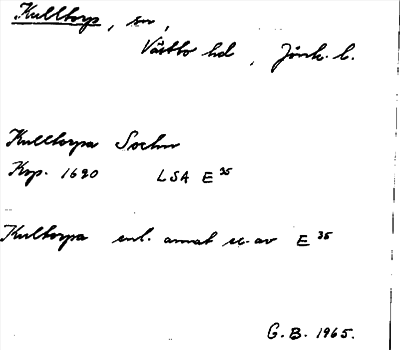 Kulltorp, sn,
Västbo hd, Jönk. l.
Kulltorpa Sochn
Kop. 1690 LSA E 35
Kultorpa enl. annat ex. av E 35
G. B. 1965.